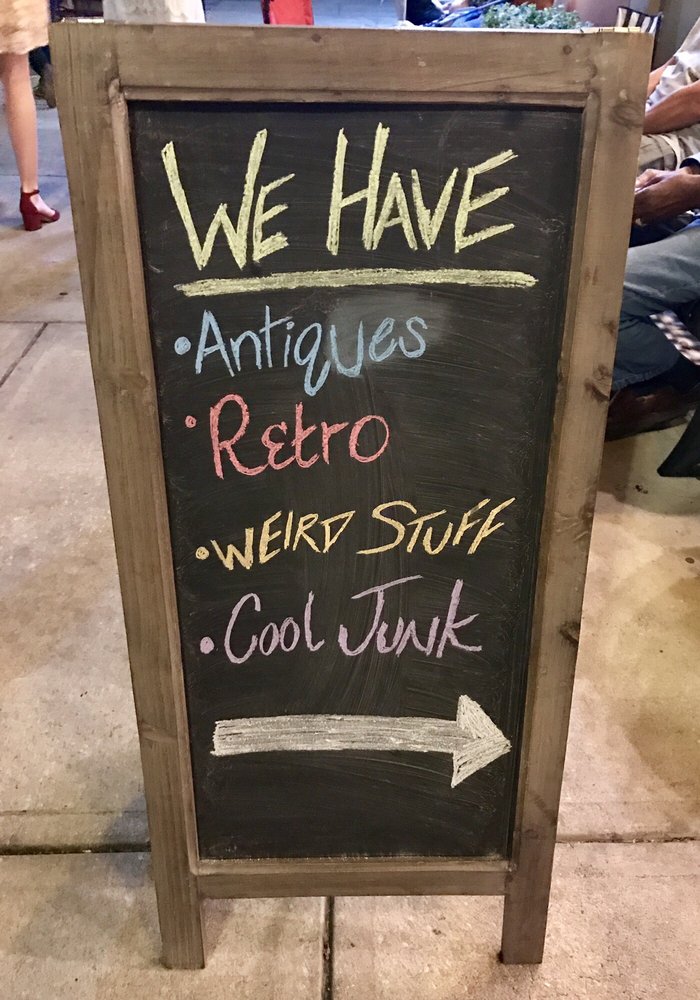 WE HAVE
•Antiques
•Retro
•WEIRD STUFF
•Cool Junk